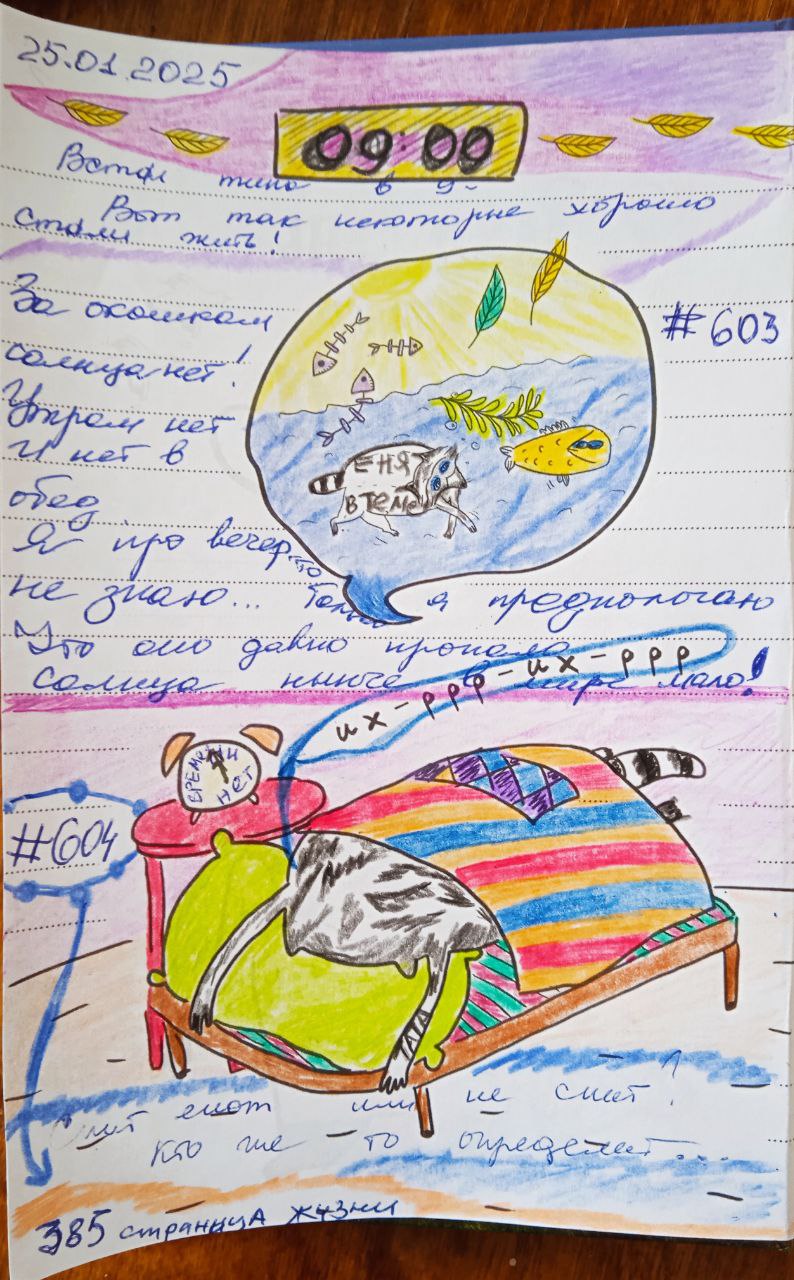 25.01.2025
09:00
Встал типа в 9-
Вот так некоторые хорошо
стали жить!
За окошком
солнца нет!
#603
Утром нет
И нет в
обед
ЕНЯ
В ТЕМЕ
Я про вечер-то
не знаю... Только я предпологаю
Что оно давно пропало
солнца нынче в мире мало!
их-ррр-их-ррр
ВРЕМЕНИ
НЕТ
#604
ТАТА
Спит енот или не спит?
Кто же - то определит...
385 страница жизни